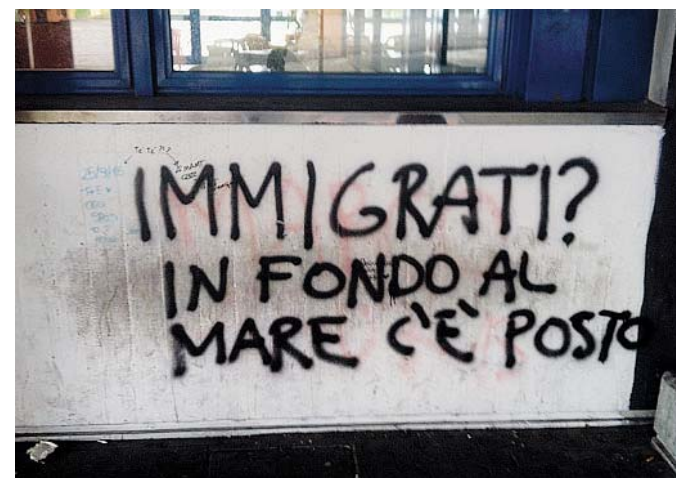 IMMIGRATI?
IN FONDO AL
MARE C'È POSTO